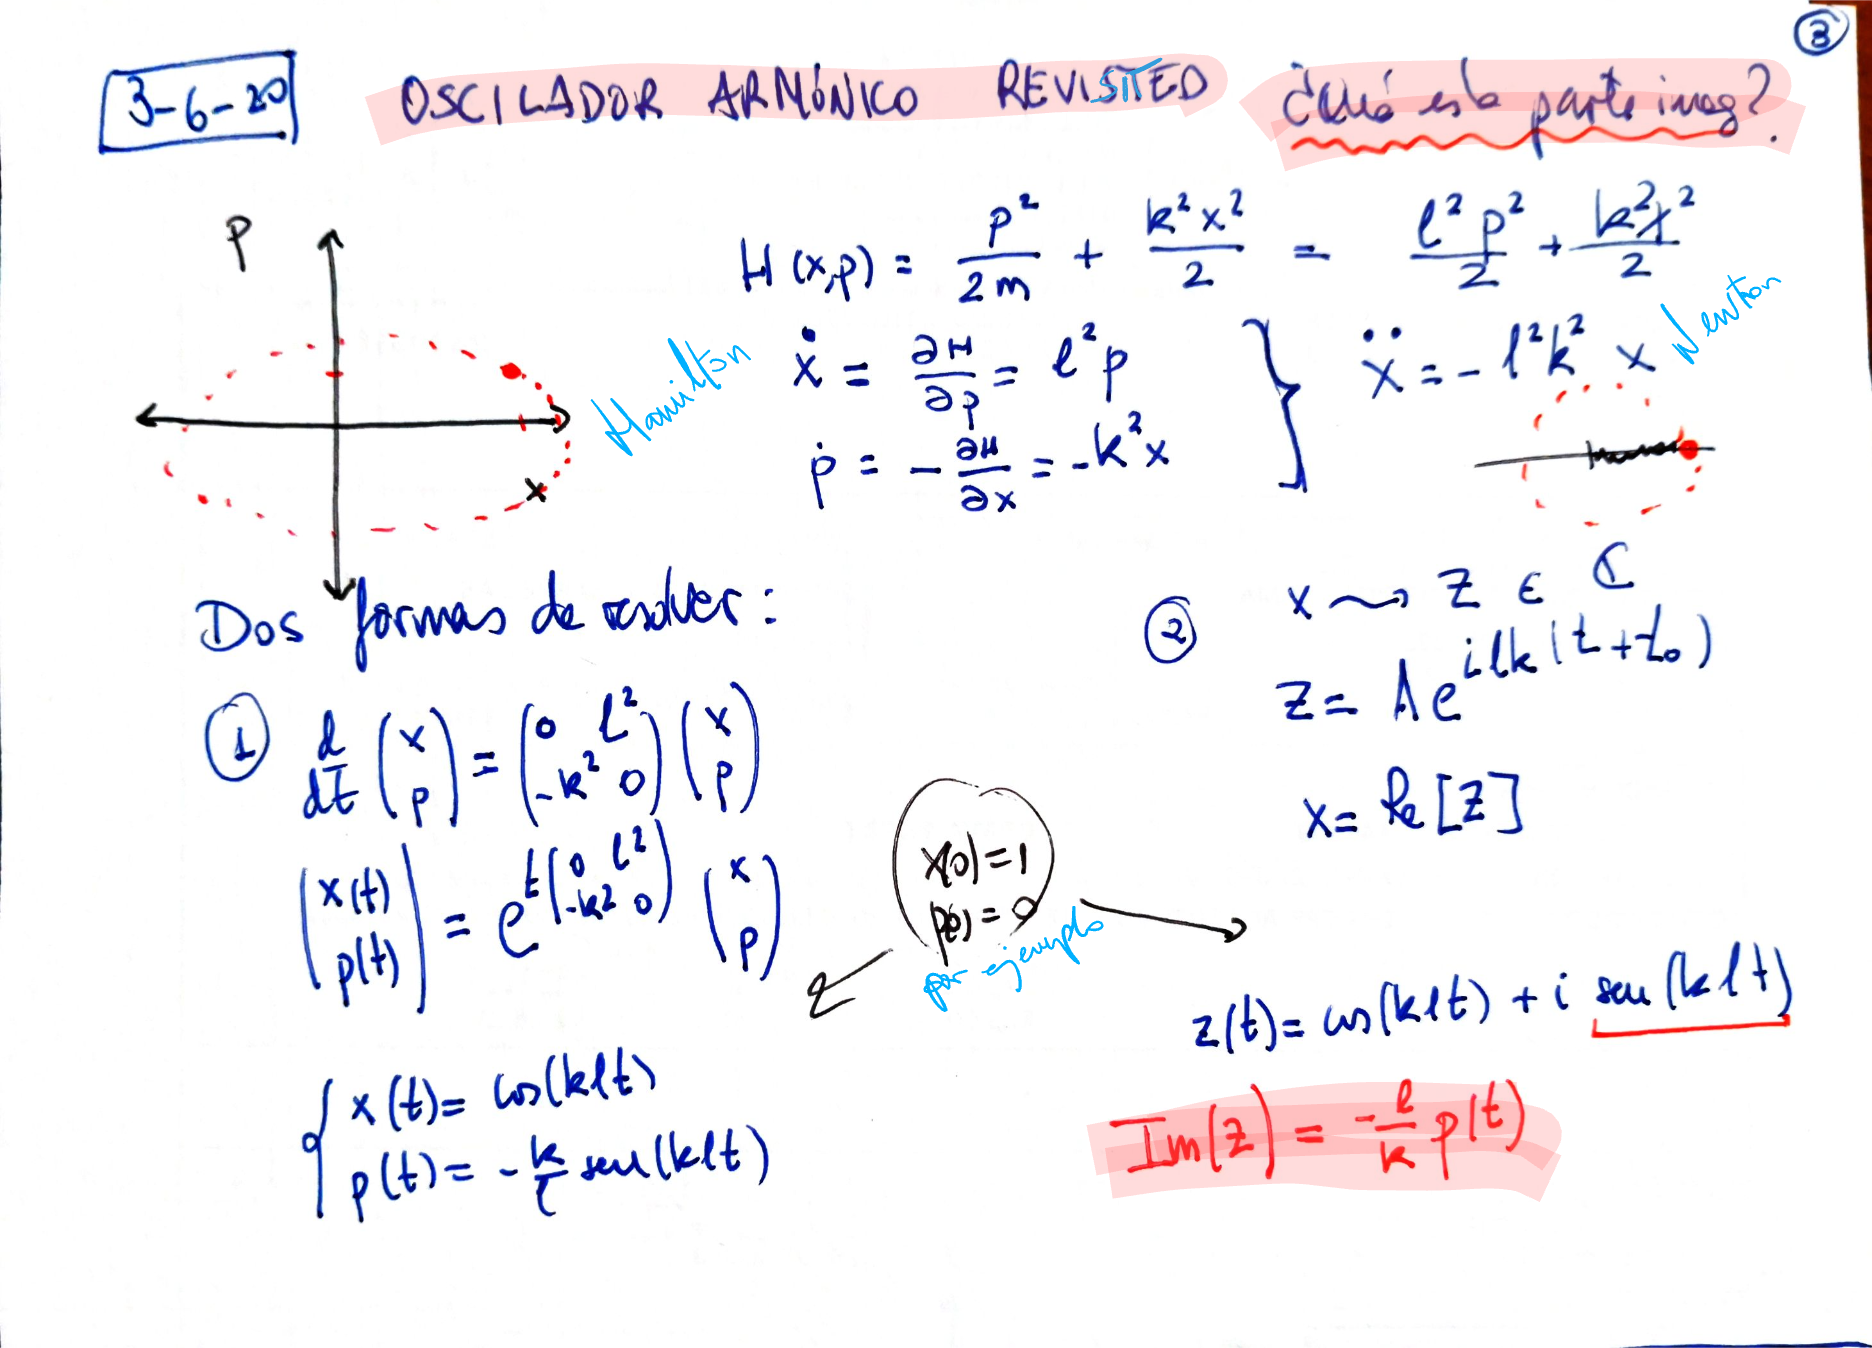 3
3-6-20 OSCILADOR ARMÓNICO REVISITED ¿Qué es la parte imag?
p
H(x,p) = p²/2m + k²x²/2 = l²p²/2 + k²x²/2
Hamilton
ẋ = ∂H/∂p = l²p
ẍ = -l²k² x
Newton
ṗ = -∂H/∂x = -k²x
x
Dos formas de resolver:
① d/dt (x p) = (0 l² -k² 0) (x p)
(x(t) p(t)) = e^t(0 l² -k² 0) (x p)
x(0)=1
p(0)=0
por ejemplo
{ x(t)= cos(klt)
p(t)= -k/l sen(klt)
② x ⇝ z ∈ ℂ
z = A e^{ilk(t+t₀)}
x = Re[z]
z(t)= cos(klt) + i sen(klt)
Im(z) = -l/k p(t)